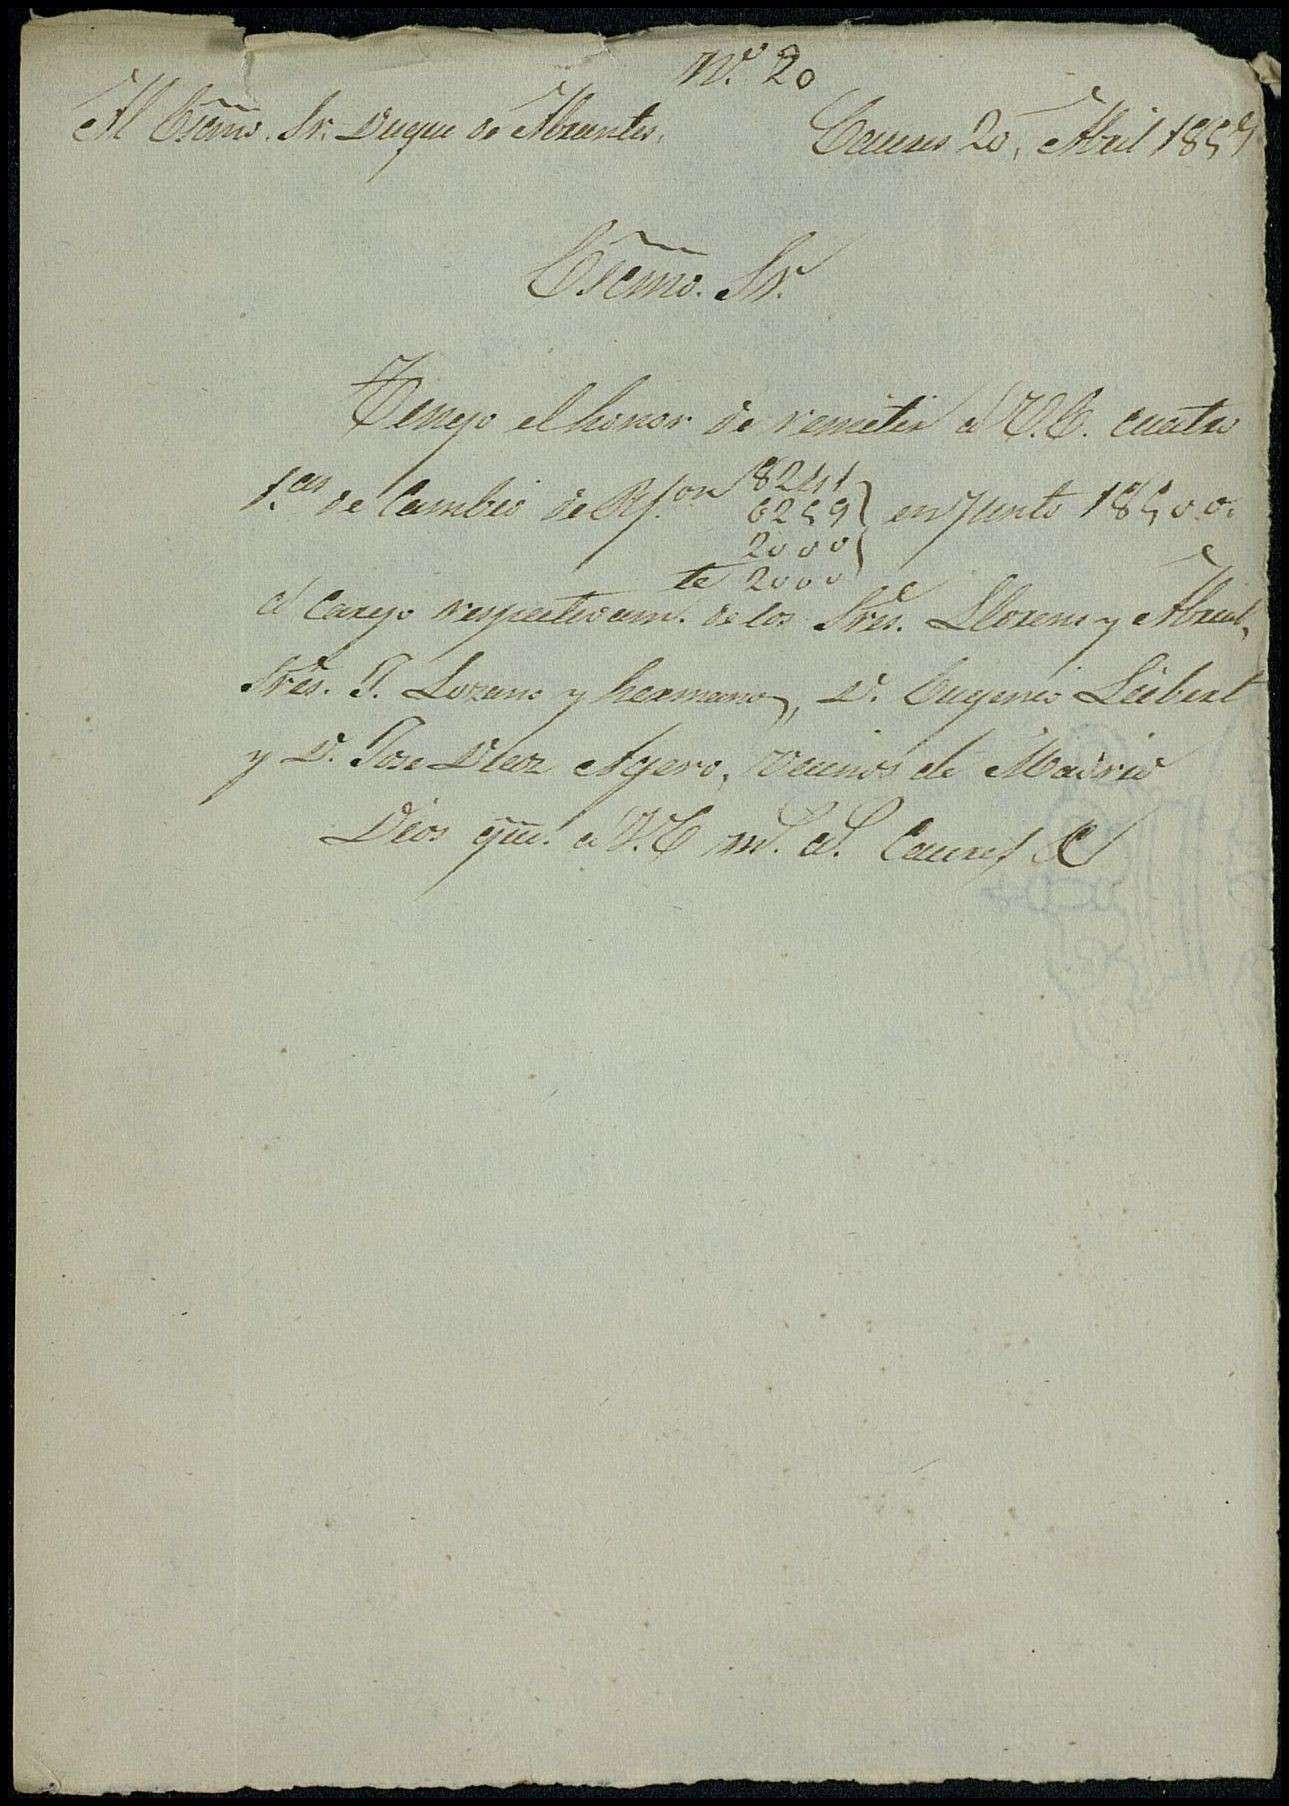 N.º 20
Al Escmo. Sr. Duque de Abrantes.
Caceres 20, Abril 1859
Escmo. Sr.
Tengo el honor de remitir á V.E. cuatro
1.as de Cambio de Rs.on 8241
6259 } en junto 18500.
2000
2000
al cargo respectivam.te de los Sres. Llorens y Abreul,
Sres. J. Lozano y hermano, D. Eugenio Luibert
y D. Jose Diez Agero, vecinos de Madrid
Dios gue. á V.E m.s a.s Caceres &